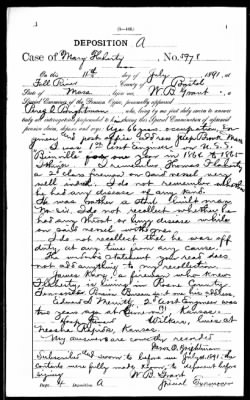 (3—446.)
DEPOSITION A
Case of Mary Flaherty, No. 3978
On this 11th day of July, 1891, at
Fall River, County of Bristol
State of Mass, before me, W B Grant, a
Special Examiner of the Pension Office, personally appeared
Benj. D. Brightman, who, being by me first duly sworn to answer
truly all interrogatories propounded to him during this Special Examination of aforesaid
pension claim, deposes and says: Age 66 years, occupation, En-
gineer and post office address
I was 1st Asst. Engineer on U.S.S.
Bienville one year in 1864 & 1865
I think. I remember Thomas Flaherty
a 2d class fireman on said vessel very
well indeed. I do not remember whether
he had any disease of any kind.
He was rather a stout built man
No sir, I do not recollect whether he
had any throat or lung disease while
on said vessel.
I do not recollect that he was off
duty at any time from any cause.
The sister's statement you read does
not add anything to my recollection.
James Kary a fireman who knew
Flaherty, is living in County
Tennessee.
Edward S. Merrill, 2d Asst Engineer was
two years ago at Kansas.
lives at
Neosho Rapids, Kansas.
My answers are correctly recorded
Benj. D. Brightman
Subscribed and sworn to before me July 11, 1891 & the
contents were fully made known to deponent before
signing
W B Grant
Special Examiner
Page 4 Deposition A